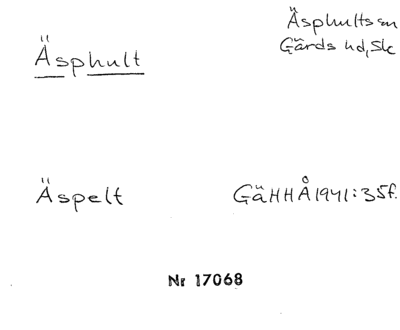 Äsphult
Äsphults sn
Gärds hd, Sk
Äspelt
GäHHÅ 1941:35f.
Nr 17068